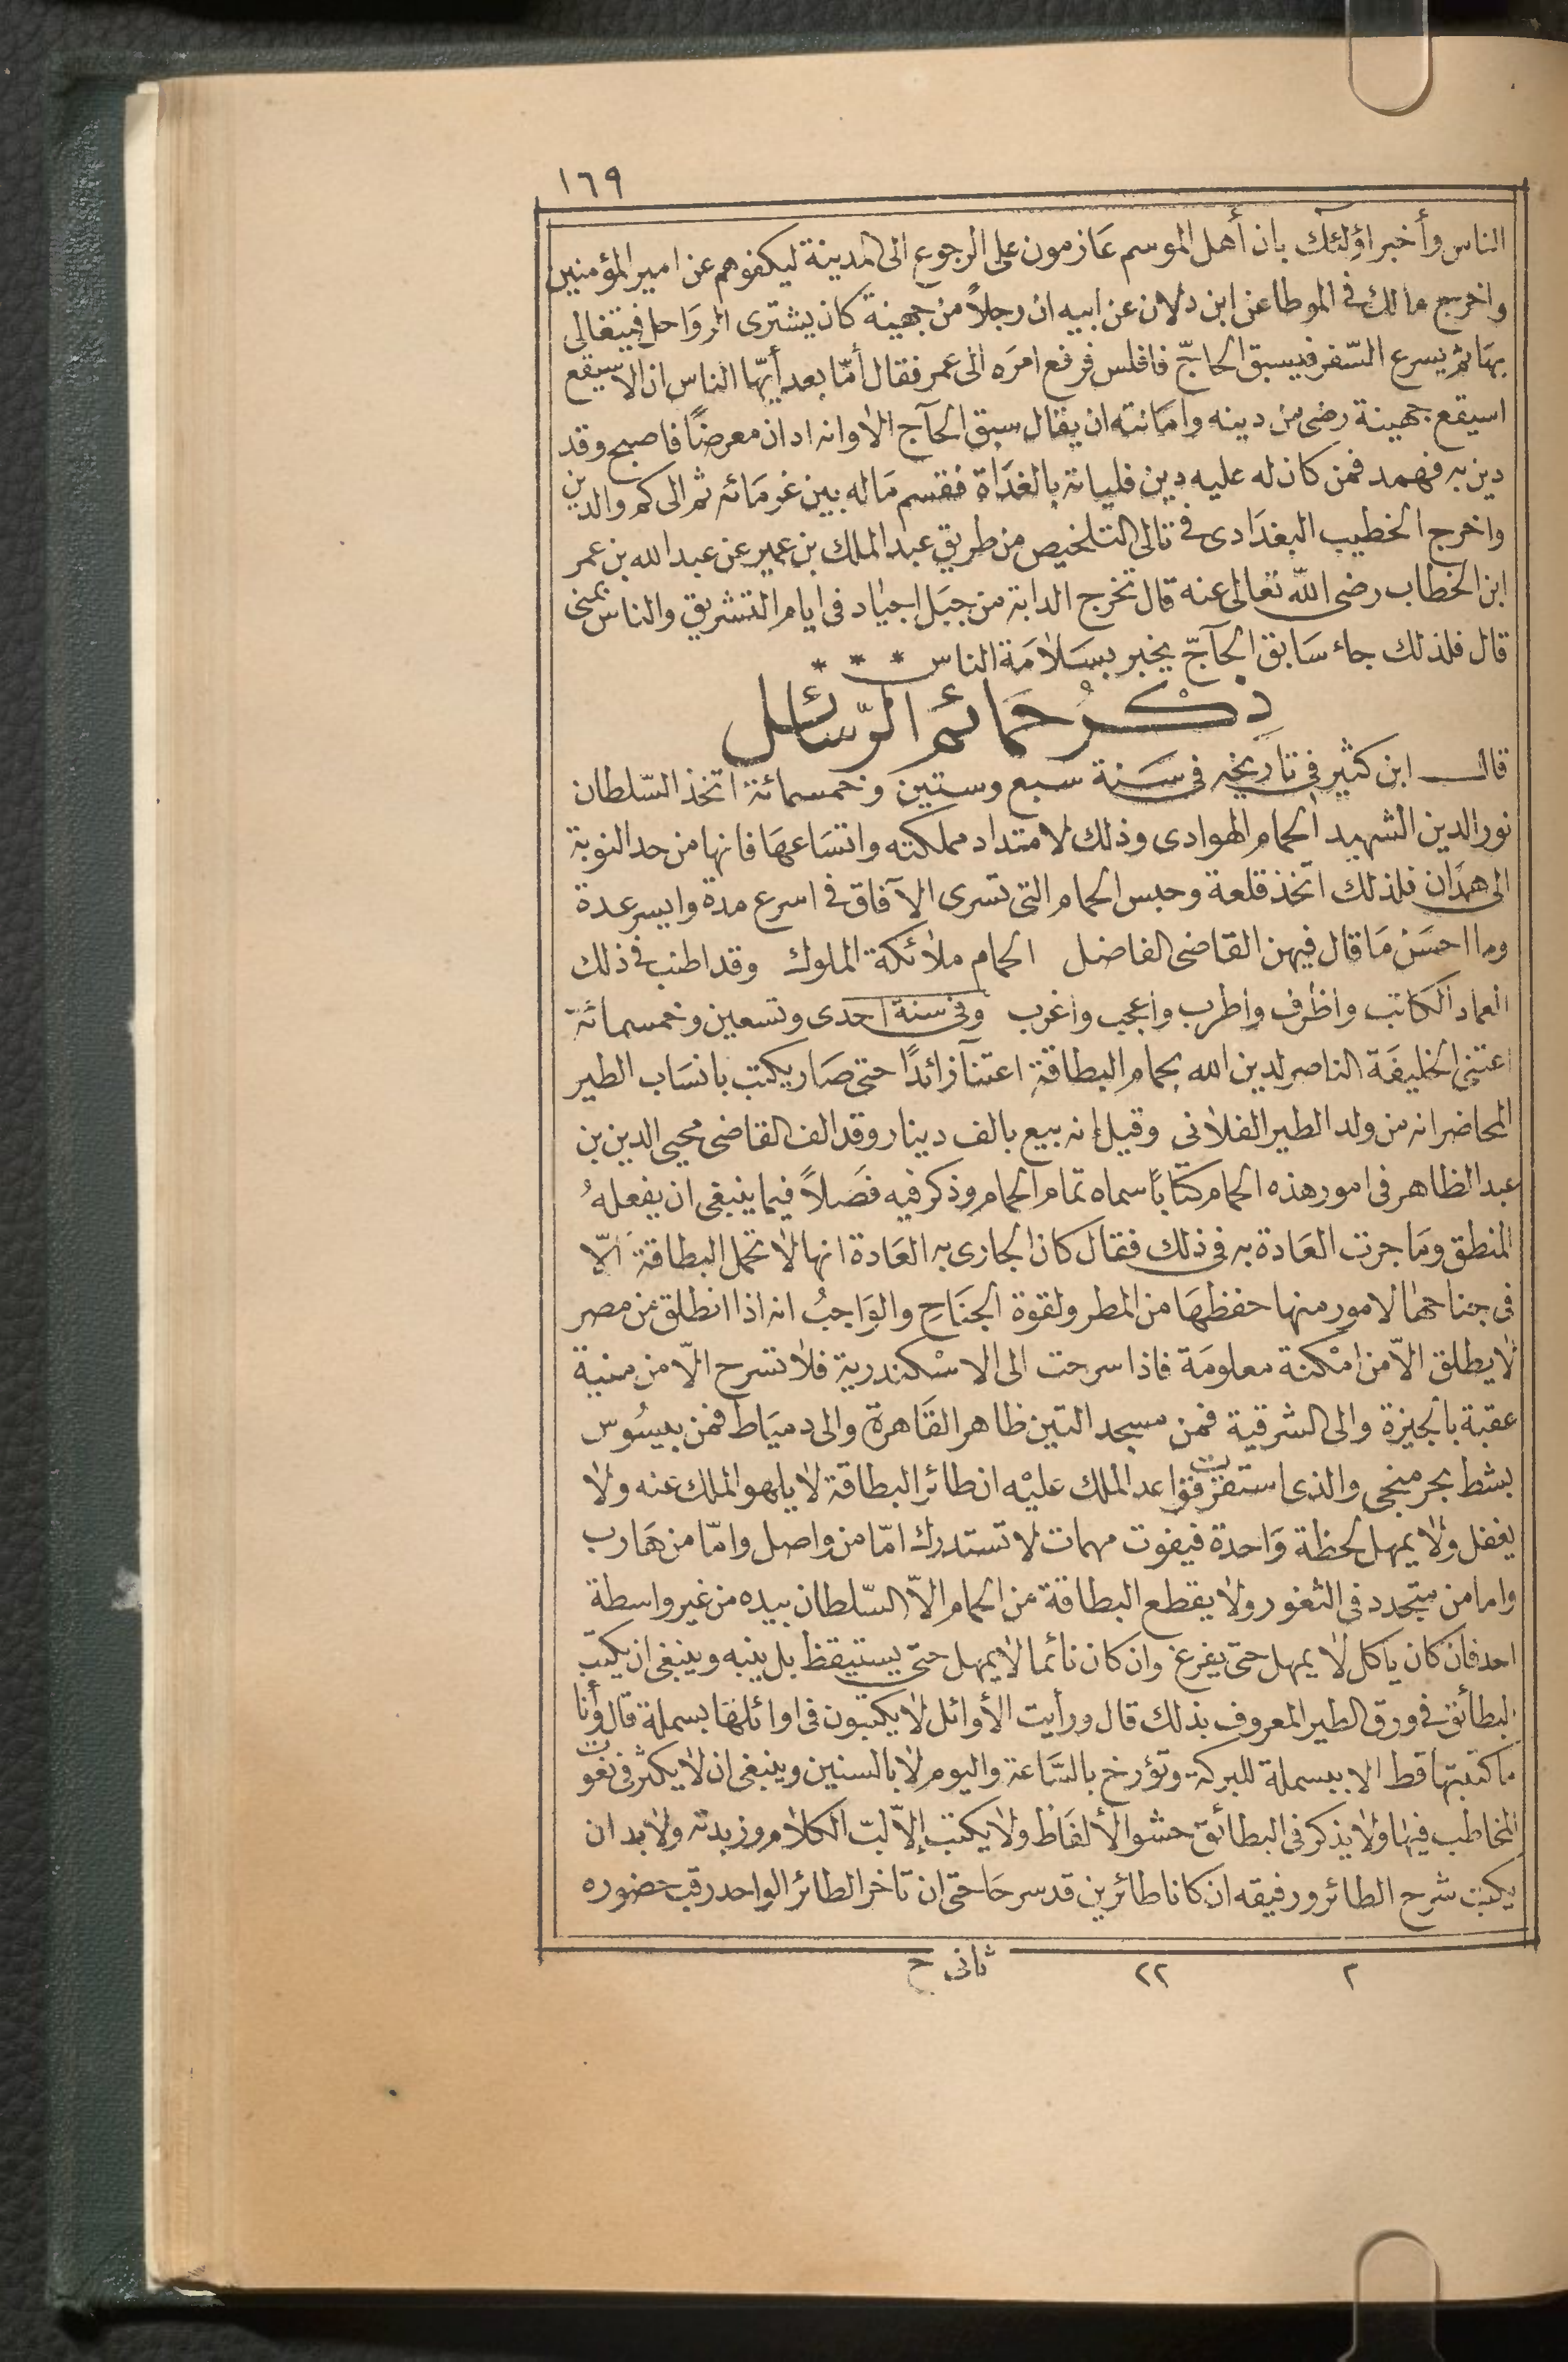 ١٦٩
الناس وأخبر اؤلئك بان أهل الموسم عازمون على الرجوع الى المدينة ليكفوهم عن امير المؤمنين
واخرج مالك فى الموطا عن ابن دلان عن ابيه ان رجلاً من جهينة كان يشترى الرواحل فيتغالى
بها ثم يسرع السّفر فيسبق الحاجّ فافلس فرفع امره الى عمر فقال أمّا بعد أيّها الناس ان الاسيقع
اسيقع جهينة رضى من دينه وامانته ان يقال سبق الحآج الا وانه ادان معرضاً فاصبح وقد
دين به فهمد فمن كان له عليه دين فلياته بالغداة فقسم ماله بين غرمائه ثم الى كم والدين
واخرج الخطيب البغدادى فى تالى التلخيص من طريق عبد الملك بن عمير عن عبد الله بن عمر
ابن الخطاب رضى الله تعالى عنه قال تخرج الدابة من جبل اجياد فى ايام التشريق والناس بمنى
قال فلذلك جاء سابق الحآجّ يخبر بسلامة الناس * * *
ذكر حمائم الرّسائل
قال ابن كثير فى تاريخه فى سنة سبع وستين وخمسمائة اتخذ السّلطان
نور الدين الشهيد الحمام الهوادى وذلك لامتداد مملكته واتساعها فانها من حد النوبة
الى همدان فلذلك اتخذ قلعة وحبس الحمام التى تسرى الآفاق فى اسرع مدة وايسر عدة
وما احسن ما قال فيهن القاضى الفاضل الحمام ملائكة الملوك وقد اطنب فى ذلك
العماد الكاتب واظرف واطرب واعجب واغرب وفى سنة احدى وتسعين وخمسمائة
اعتنى الخليفة الناصر لدين الله بحمام البطاقة اعتنآ زائدًا حتى صار يكتب بانساب الطير
المحاضر انه من ولد الطير الفلانى وقيل إنه بيع بالف دينار وقد الف القاضى محيى الدين بن
عبد الظاهر فى امور هذه الحمام كتاباً سماه تمام الحمام وذكر فيه فصلاً فيما ينبغى ان يفعلهُ
المنطق وما جرت العادة به فى ذلك فقال كان الجارى به العادة انها لا تحمل البطاقة الّا
فى جناحها لامور منها حفظها من المطر ولقوة الجناح والواجبُ انه اذا انطلق من مصر
لا يطلق الاّ من امكنة معلومة فاذا سرحت الى الاسكندرية فلا تسرح الّا من منية
عقبة بالجيزة والى الشرقية فمن مسجد التين ظاهر القاهرة والى دمياط فمن بيسُوس
بشط بحر منجى والذى استقرت قواعد الملك عليْه ان طائر البطاقة لا يلهو الملك عنه ولا
يغفل ولا يمهل لحظة واحدة فيفوت مهمات لا تستدرك امّا من واصل وامّا من هارب
واما من متجدد فى الثغور ولا يقطع البطاقة من الحمام الاّ السّلطان بيده من غير واسطة
احد فان كان ياكل لا يمهل حتى يفرغ وان كان نائما لا يمهل حتى يستيقظ بل ينبه وينبغى ان يكتب
البطائق فى ورق الطير المعروف بذلك قال ورأيت الأوائل لا يكتبون فى اوائلها بسملة قال وأنا
ما كتبتها قط الا ببسملة للبركة وتؤرخ بالسّاعة واليوم لا بالسنين وينبغى ان لا يكثر فى نعوت
المخاطب فيها ولا يذكر فى البطائق حشو الألفاظ ولا يكتب إلاّ لبّ الكلام وزبدته ولا بد ان
يكتب شرح الطائر ورفيقه ان كانا طائرين قد سرحا حتى ان تاخر الطائر الواحد رقب حضوره
٢ ٢٢ ثانى ح